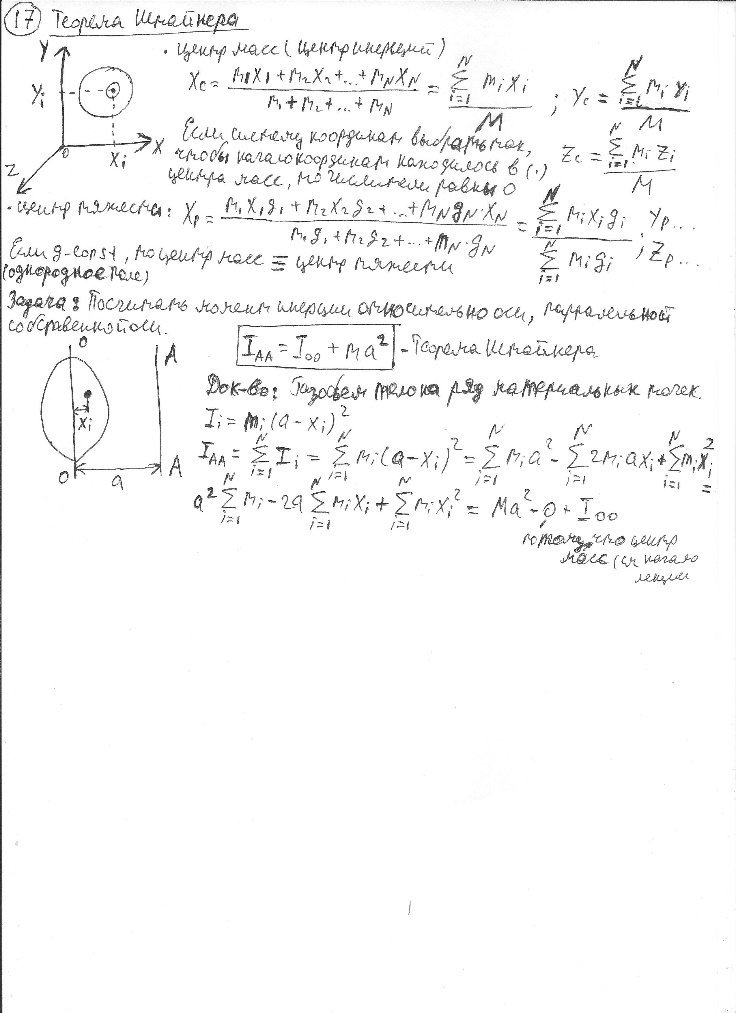 17 Теорема Штайнера
• центр масс (центр инерций)
Xc = (m1X1 + m2X2 + ... + mNXN) / (m1 + m2 + ... + mN) = ∑_{i=1}^{N} miXi / M ; Yc = ∑_{i=1}^{N} miYi / M
Y Yi Z 0 Xi X
Если систему координат выбрать так,
чтобы начало координат находилось в (·)
центра масс, то числители равны 0
Zc = ∑_{i=1}^{N} miZi / M
• центр тяжести: Xp = (m1X1g1 + m2X2g2 + ... + mNgN·XN) / (m1g1 + m2g2 + ... + mN·gN) = ∑_{i=1}^{N} miXigi / ∑_{i=1}^{N} migi ; Yp... Zp...
Если g-const, то центр масс ≡ центр тяжести
(однородное поле)
Задача: Посчитать момент инерции относительно оси, параллельной
собственной оси.
I_AA = I_00 + ma² - Теорема Штайнера
O A Xi O a A
Док-во: Разобьем тело на ряд материальных точек.
Ii = mi(a - xi)²
I_AA = ∑_{i=1}^{N} Ii = ∑_{i=1}^{N} mi(a - xi)² = ∑_{i=1}^{N} mia² - ∑_{i=1}^{N} 2miaxi + ∑_{i=1}^{N} miXi² =
a² ∑_{i=1}^{N} mi - 2a ∑_{i=1}^{N} miXi + ∑_{i=1}^{N} miXi² = Ma² - 0 + I_00
потому, что центр
масс (см начало
лекции